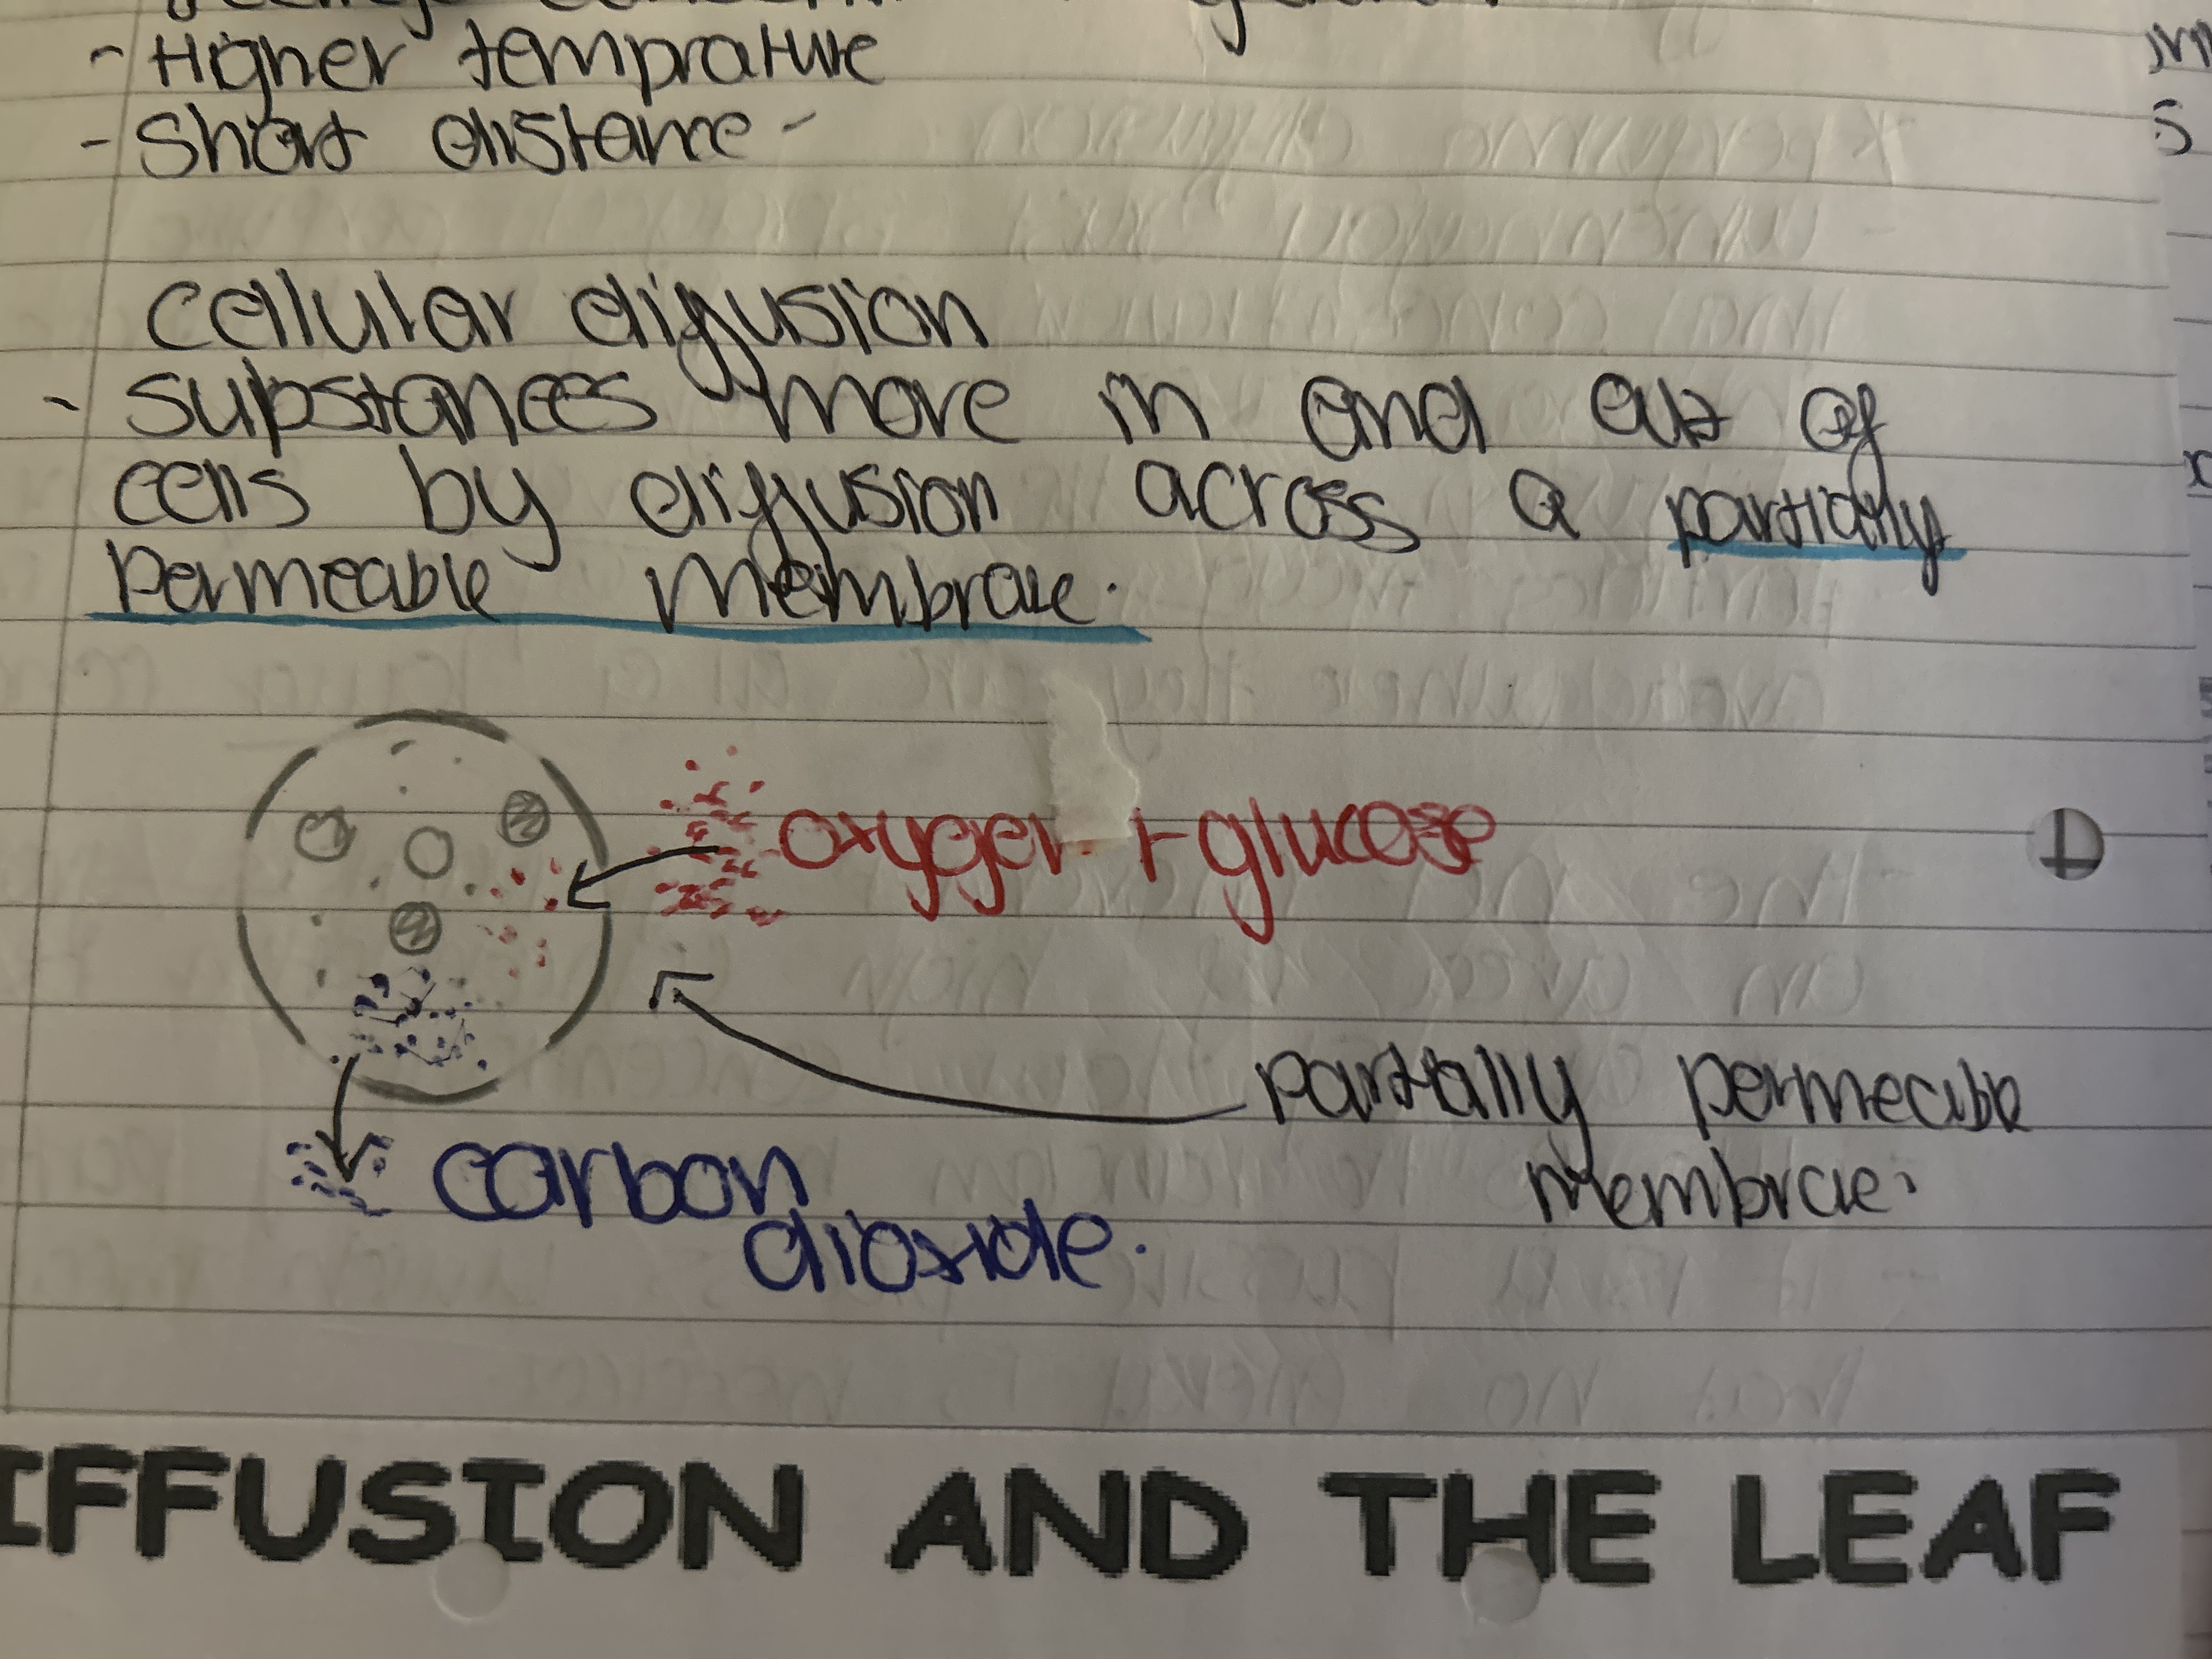 - Higher temprature
- Short distance -
cellular diffusion
- substances move in and out of
cells by diffusion across a partially
permeable membrane.
oxygen + glucose
partially permeable
membrane.
carbon
dioxide.
IFFUSION AND THE LEAF